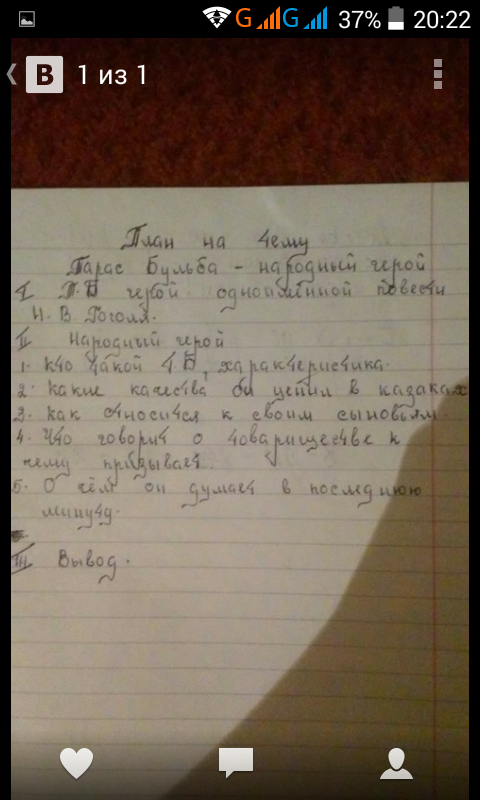 G G 37% 20:22
B 1 из 1
План на тему
Тарас Бульба - народный герой
I Т.Б герой одноимённой повести
Н. В Гоголя.
II Народный герой
1. кто такой Т.Б, характеристика.
2. какие качества он ценил в казаках
3. как относился к своим сыновьям.
4. Что говорит о товариществе к
чему призывает.
5. О чём он думает в последнюю
минуту.
III Вывод.